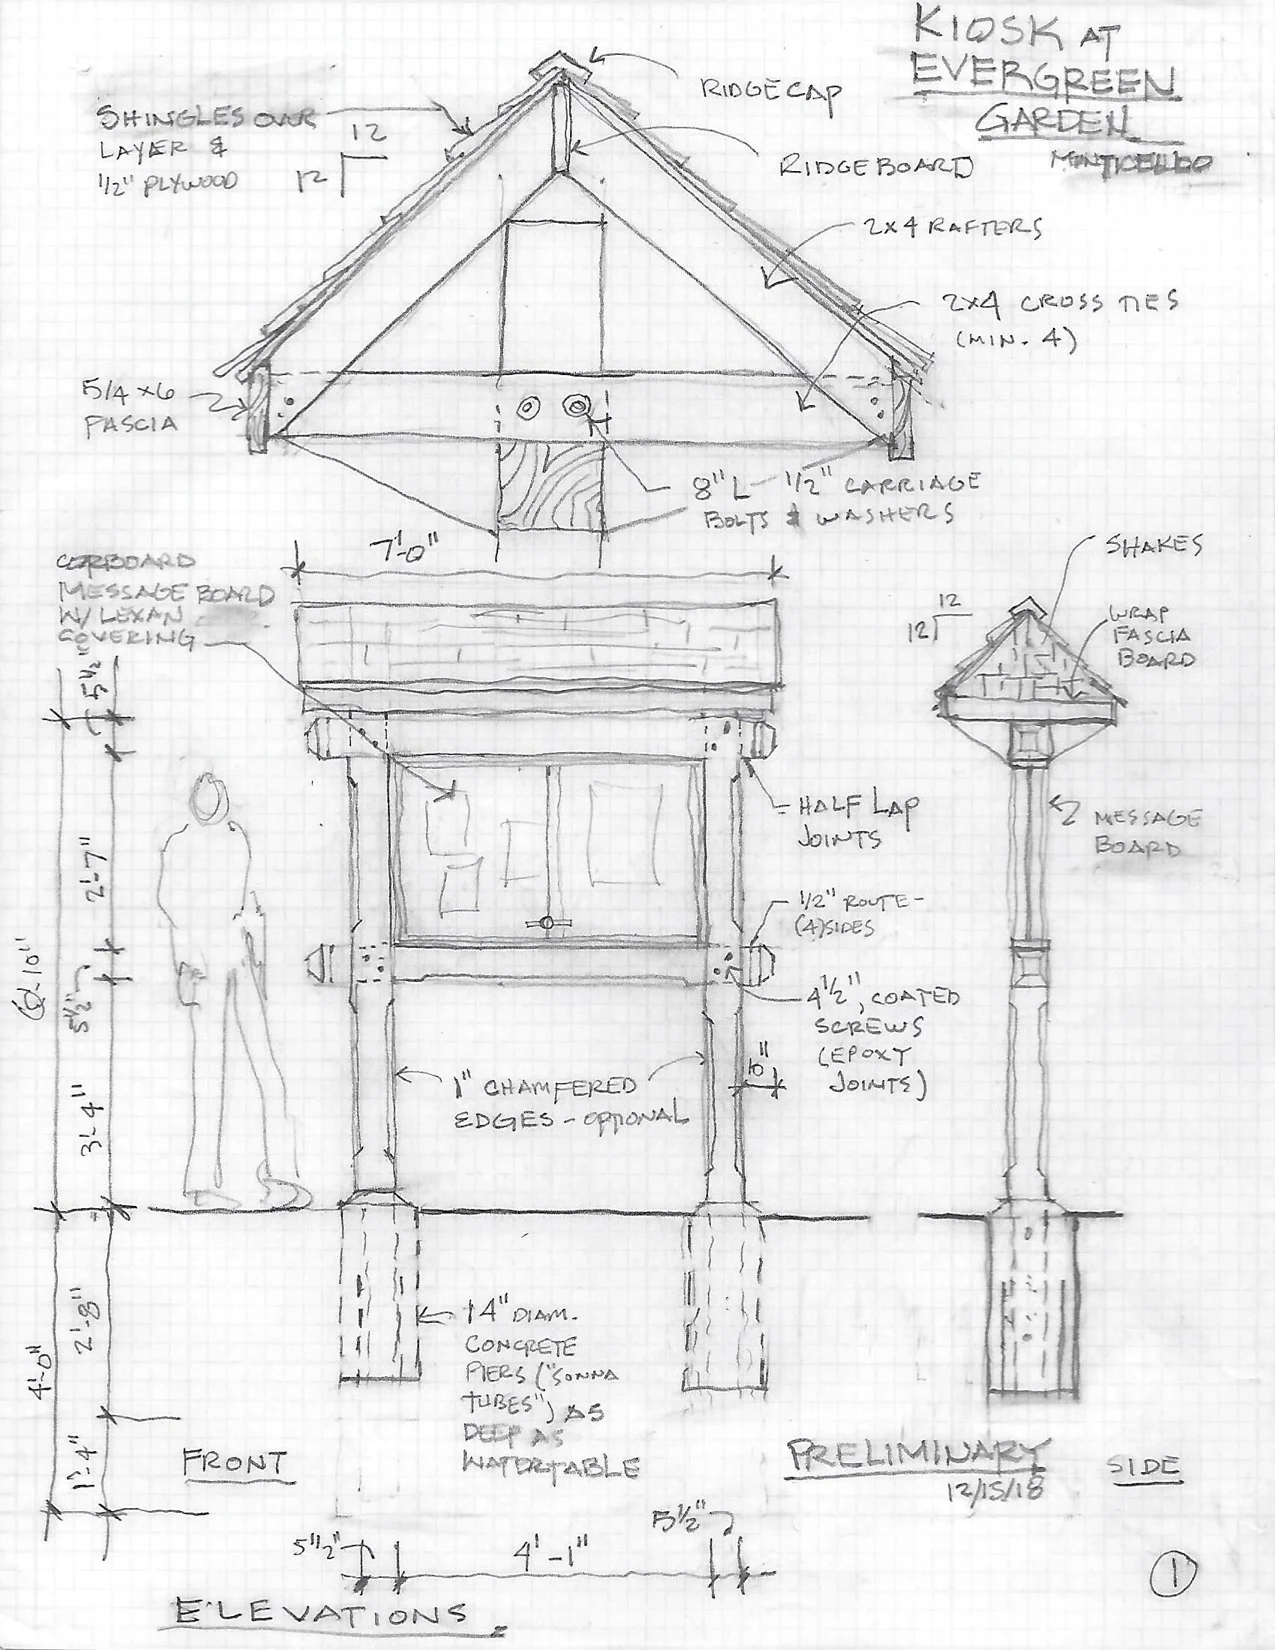 KIOSK AT
EVERGREEN
GARDEN
MONTICELLO
RIDGE CAP
SHINGLES OVER
LAYER &
1/2" PLYWOOD
12
12
RIDGE BOARD
2x4 RAFTERS
2x4 CROSS TIES
(MIN. 4)
5/4 x6
FASCIA
8"L - 1/2" CARRIAGE
BOLTS & WASHERS
7'-0"
MESSAGE BOARD
W/ LEXAN
COVERING
SHAKES
12
12
WRAP
FASCIA
BOARD
5 1/2"
HALF LAP
JOINTS
MESSAGE
BOARD
2'-7"
1/2" ROUTE -
(4) SIDES
6'-10"
5 1/2"
4 1/2", COATED
SCREWS
(EPOXY
JOINTS)
10"
1" CHAMFERED
EDGES - OPTIONAL
3'-4"
2'-8"
14" DIAM.
CONCRETE
PIERS ("SONNA
TUBES") AS
DEEP AS
WATERTABLE
4'-0"
1'-4"
FRONT
PRELIMINARY
12/15/18
SIDE
5 1/2"
4'-1"
5 1/2"
ELEVATIONS
1